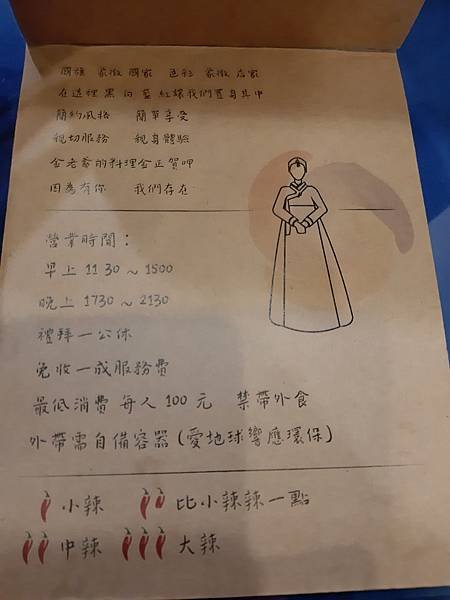 國旗 象徵 國家 色彩 象徵 店家
在這裡 黑 白 藍 紅讓我們置身其中
簡約風格 簡單享受
親切服務 親身體驗
金老爺的料理金正賀呷
因為有你 我們存在
營業時間：
早上 11 30 ~ 1500
晚上 1730 ~ 2130
禮拜一公休
免收一成服務費
最低消費 每人 100 元 禁帶外食
外帶需自備容器 (愛地球響應環保)
小辣 比小辣辣一點
中辣 大辣